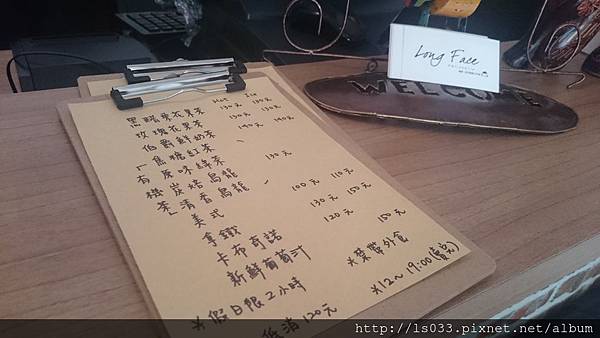 Hot Ice
黑醋栗花果茶 130元 130元
玫瑰花果茶 130元
伯爵鮮奶茶 140元 140元
「焦糖紅茶
有 原味綠茶
機 炭焙烏龍 130元
茶」清香烏龍
美式 100元 110元
拿鐵 130元 150元
卡布奇諾 120元
新鮮葡萄汁 150元
※假日限2小時 ※禁帶外食
低消120元 ※12~19:00(賣完)
Long Face
WELCOME
http://ls033.pixnet.net/album